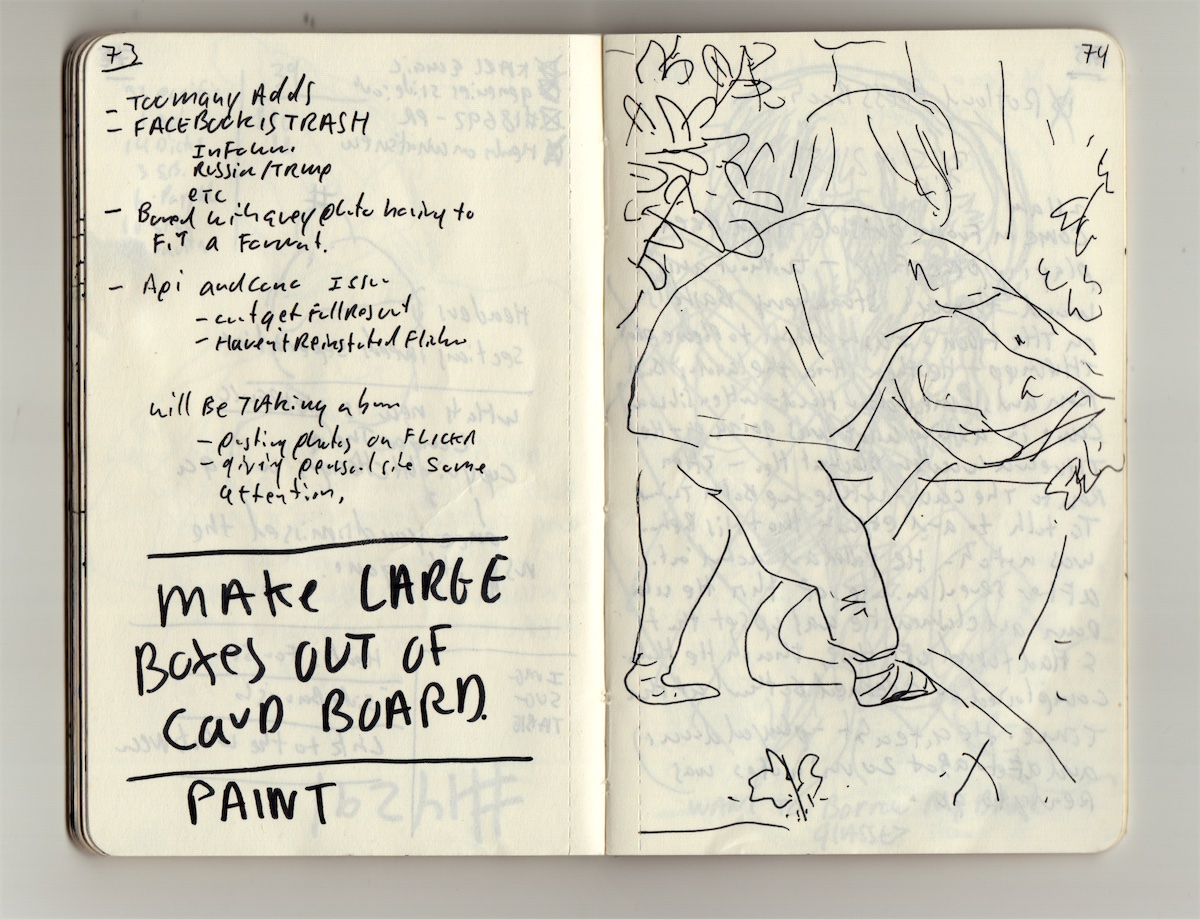 73
- Too many Adds
- FACEBOOK IS TRASH
Russia/Trump
etc
- Bored with every photo having to
Fit a Format.
- Api and Issue
- cant get Full Result
- Haven't Reinstated
will Be TAking a
- posting photos on FLICKR
- giving personal site some
attention,
MAke LARGE
Boxes OUT OF
CaRD BOARD.
PAINT
74